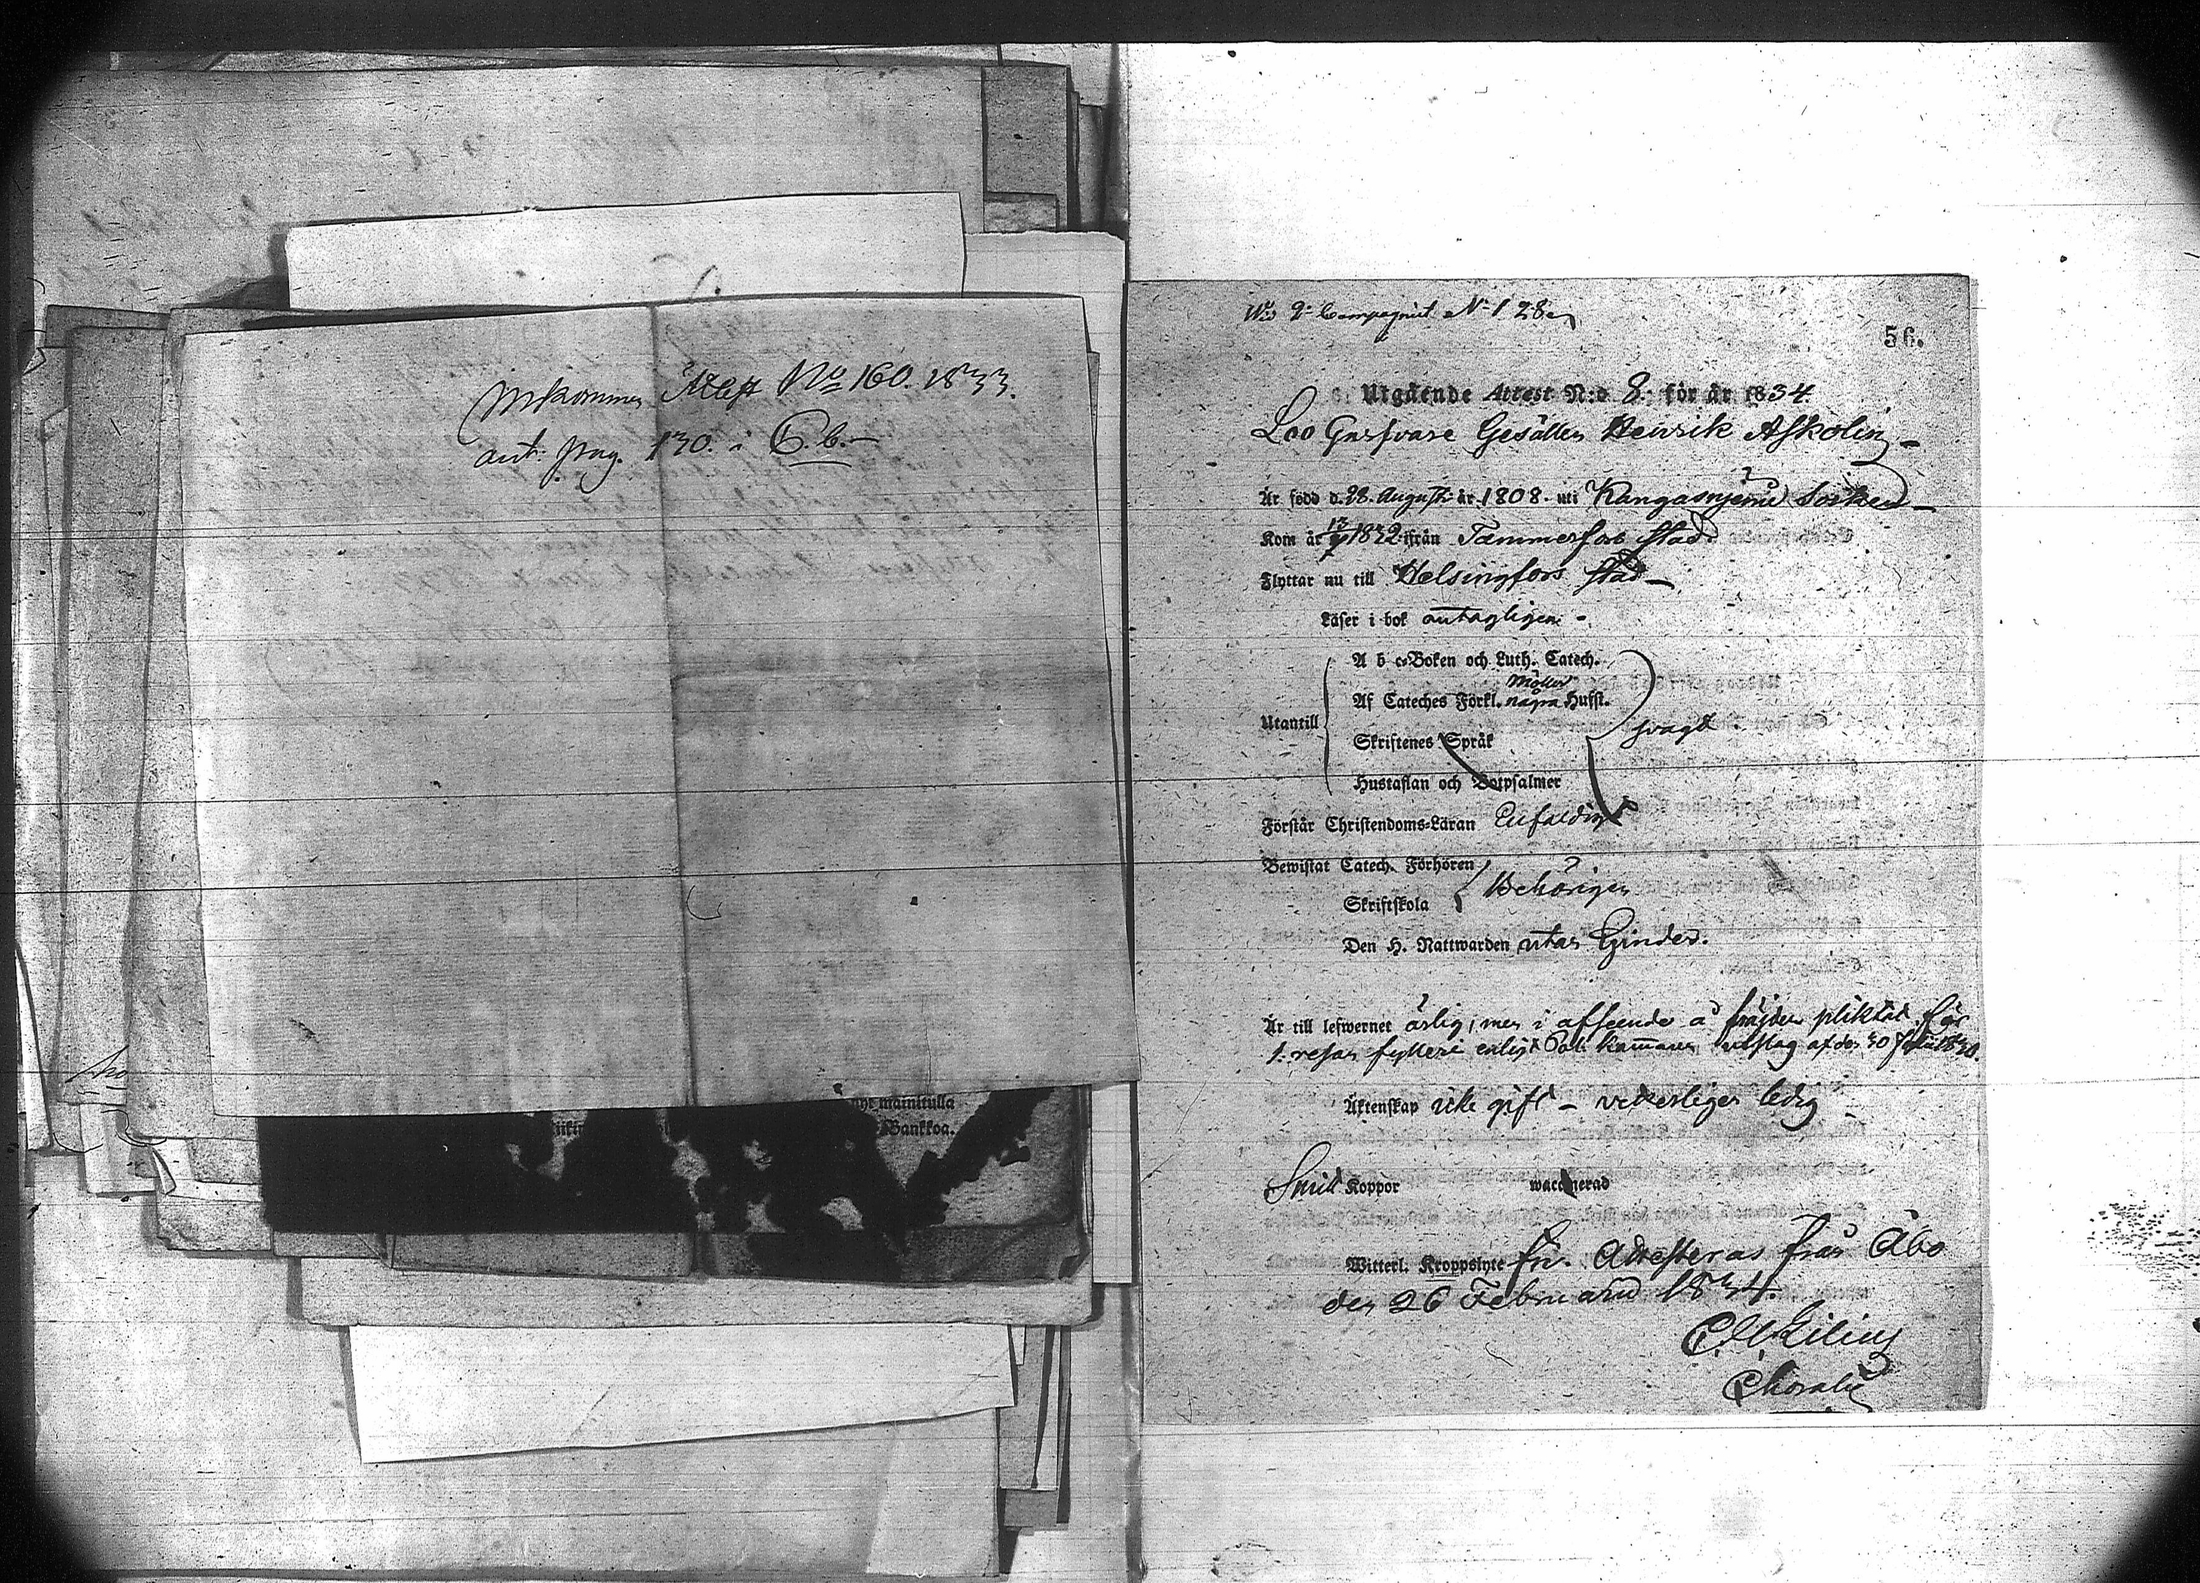 Inkommen Attest No 160. 1833.
ant. pag. 130. i C.b.
nyt mainitulla
Bankkoa.
Wid 2: Compagniet N:1 28
56.
Utgående Attest N:o 8. för år 1834
Gesällen Henrik Askolin
Är född d. 28. Augusti år 1808. uti Kangasniemi Socken
Kom år 1832 ifrån Tammerfors stad
Flyttar nu till Helsingfors stad
Läser i bok antagligen
A b c-Boken och Luth. Catech.
Möller
Af Cateches Förkl. några Hufst.
Utantill svagt
Skriftenes Språk
Hustaflan och Botpsalmer
Förstår Christendoms-Läran Enfaldigt
Bewistat Catech. Förhören
Behörigen
Skriftskola
Den H. Nattwarden utan hinder.
Är till lefwernet ärlig, men i afseende å frägden pliktat för
1. resan fylleri enligt Kammarens utslag af den 30
Äktenskap icke gift – veterligen ledig
Smitt Koppor waccinerad
Witterl. Kroppslyte fri. Attesteras från Åbo
den 26 Februarii 1834.